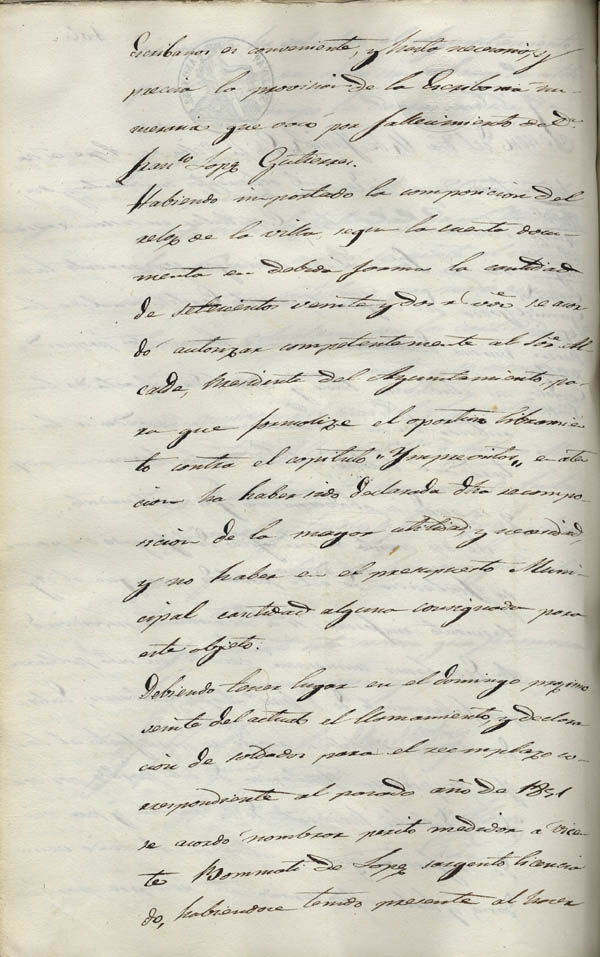 Escribanos es conveniente, y hasta necesario, y
precisa la provision de la Escribania nu-
meraria que vacó por fallecimiento de Dn.
Franco. Lopez Gutierrez.
Habiendo importado la composicion del
relox de la villa, segun la cuenta docu-
mentada en debida forma la cantidad
de setecientos veinte y dos rs. von. se acor-
dó autorizar competentemente al Sor. Al-
calde, Presidente del Ayuntamiento, pa-
ra que formalize el oportuno libramien-
to contra el capitulo "Ymprevistos" en aten-
cion ha haber sido declarada dha recompo-
sicion de la mayor utilidad, y necesidad,
y no haber en el presupuesto Muni-
cipal cantidad alguna consignada para
este objeto.
Debiendo tener lugar en el domingo proximo
veinte del actual el llamamiento, y declara-
cion de soldados para el reemplazo co-
rrespondiente al pasado año de 1851
se acordo nombrar perito medidor a Vicen-
te Bommati de Lopez sargento licencia
do, habiendose tenido presente al hacer